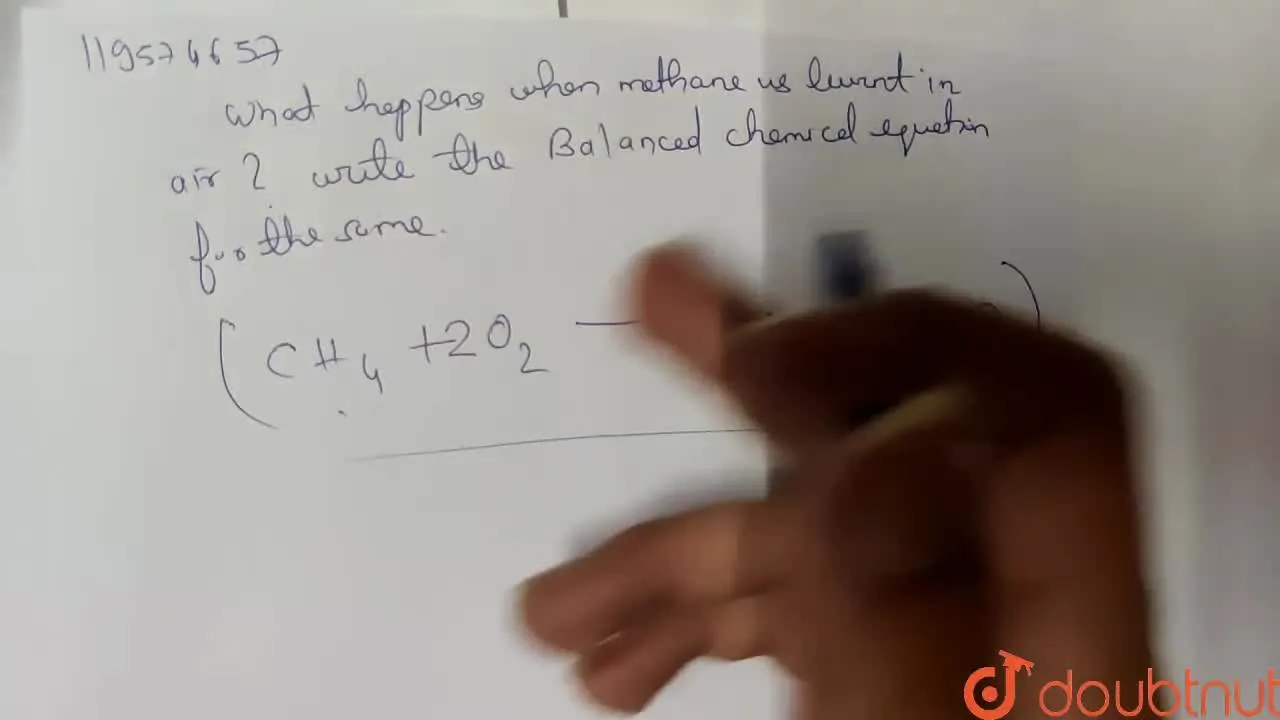 119574657
What happens when methane is burnt in
air ? write the Balanced chemical equation
for the same.
( CH4 + 2O2 — )
doubtnut